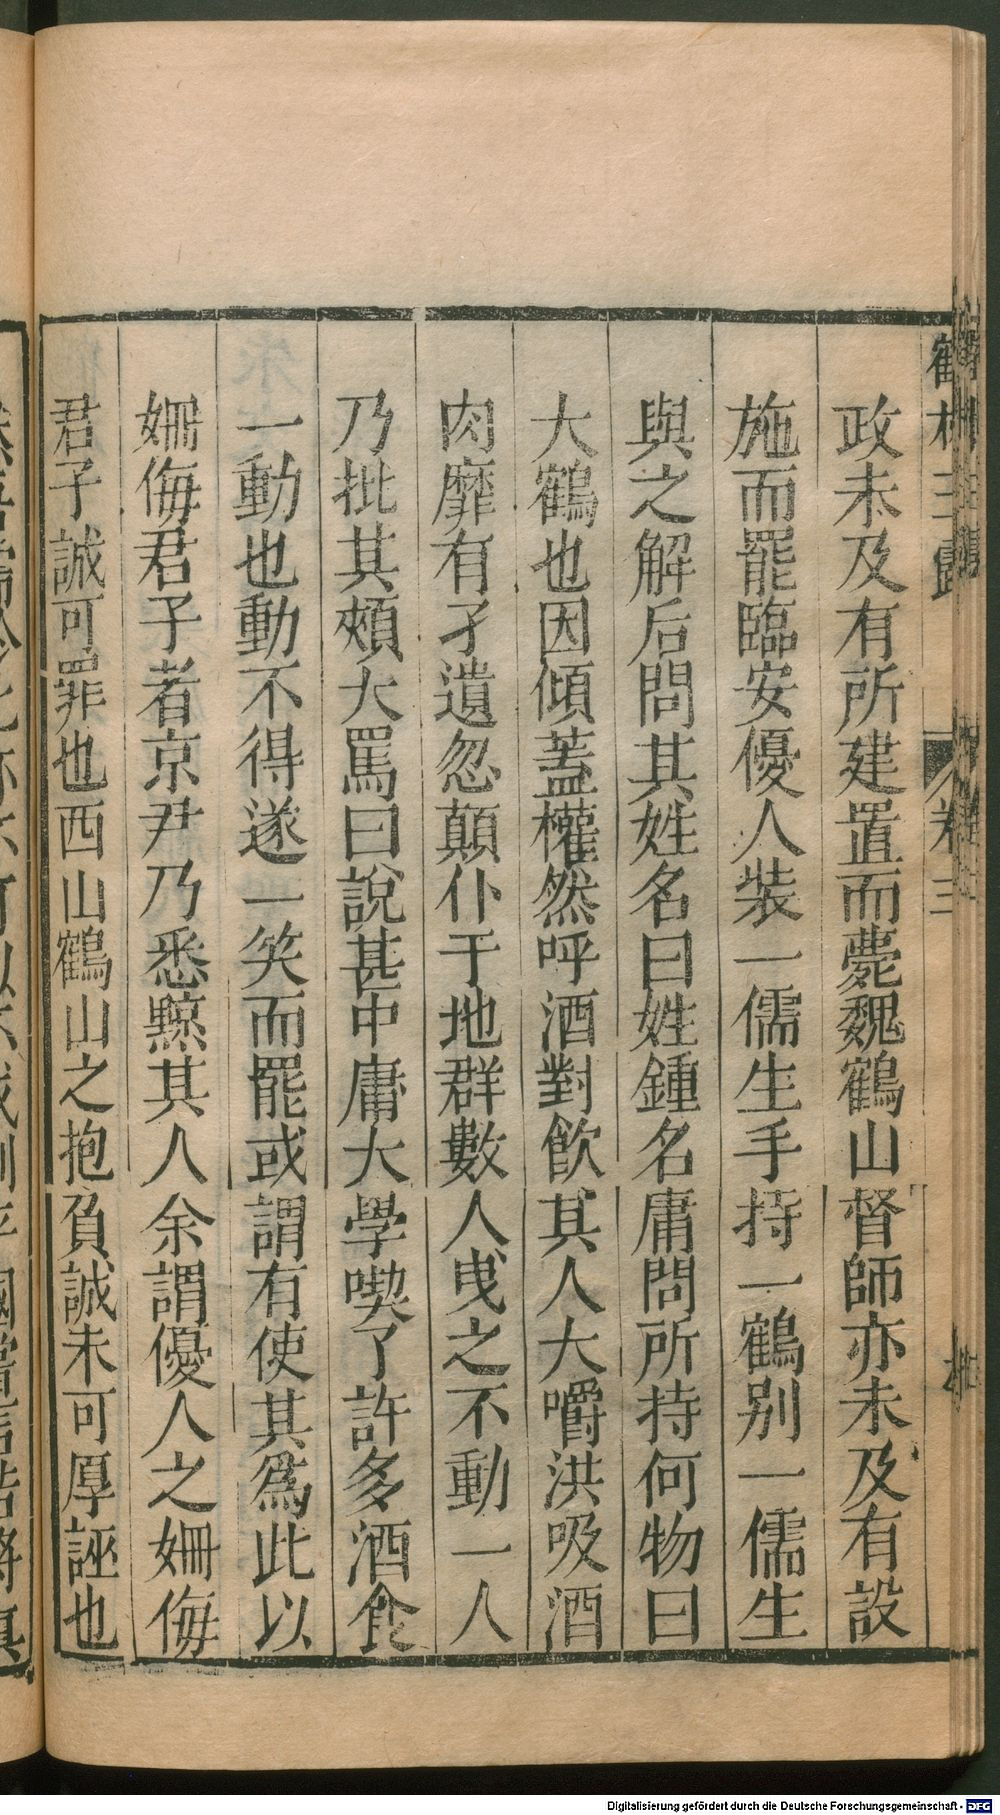 政未及有所建置而薨魏鶴山督師亦未及有設
施而罷臨安優人裝一儒生手持一鶴別一儒生
與之解后問其姓名曰姓鍾名庸問所持何物曰
大鶴也因傾蓋權然呼酒對飲其人大嚼洪吸酒
肉靡有孑遺忽顛仆于地群數人曳之不動一人
乃批其頰大罵曰說甚中庸大學喫了許多酒食
一動也動不得遂一笑而罷或謂有使其為此以
姍侮君子者京尹乃悉黥其人余謂優人之姍侮
君子誠可罪也西山鶴山之抱負誠未可厚誣也
卷三
Digitalisierung gefördert durch die Deutsche Forschungsgemeinschaft - DFG